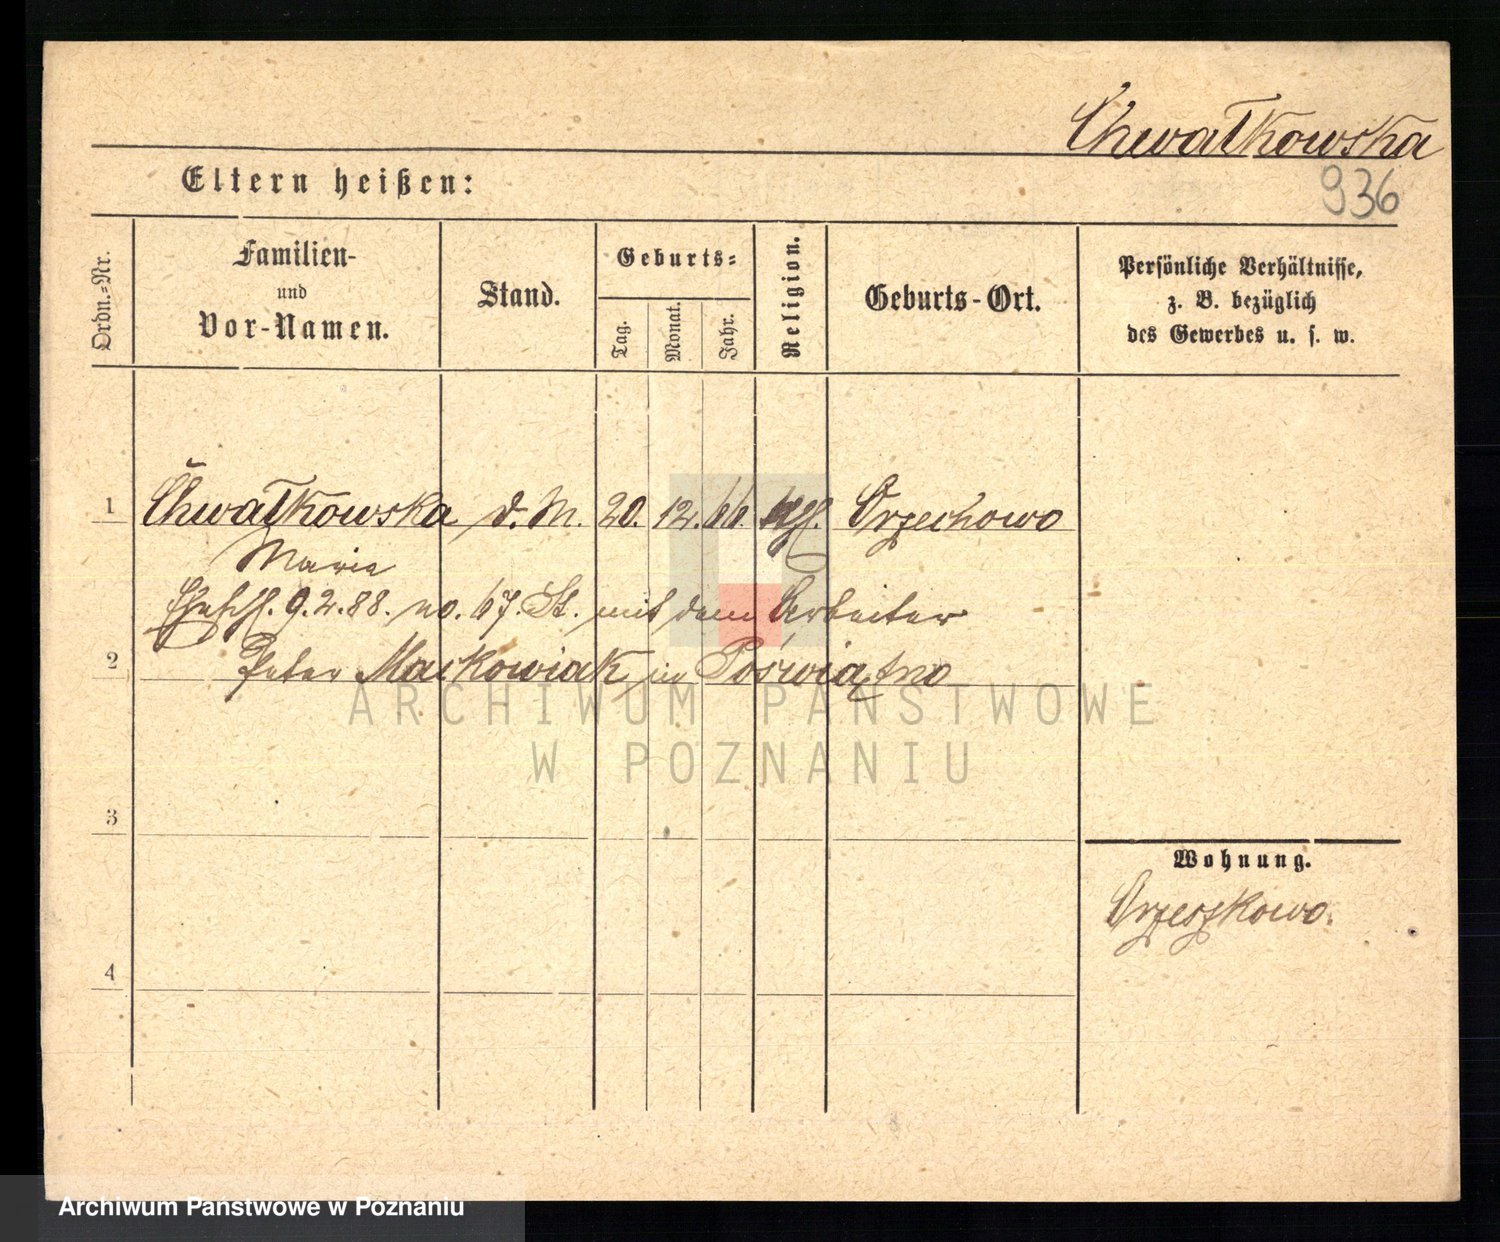 Chwałkowska
Eltern heißen:
936
Ordn.-Nr.
Familien-
und
Vor-Namen.
Stand.
Geburts-
Tag.
Monat.
Jahr.
Religion.
Geburts-Ort.
Persönliche Verhältnisse,
z. B. bezüglich
des Gewerbes u. s. w.
1 Chwałkowska d. M. 20. 12. 66. kath. Orzechowo
Maria
9.2.88. no. 67. St. mit dem Arbeiter
2 Peter Maćkowiak in Poświątno
ARCHIWUM PAŃSTWOWE
W POZNANIU
3
Wohnung.
Orzeszkowo.
4
Archiwum Państwowe w Poznaniu